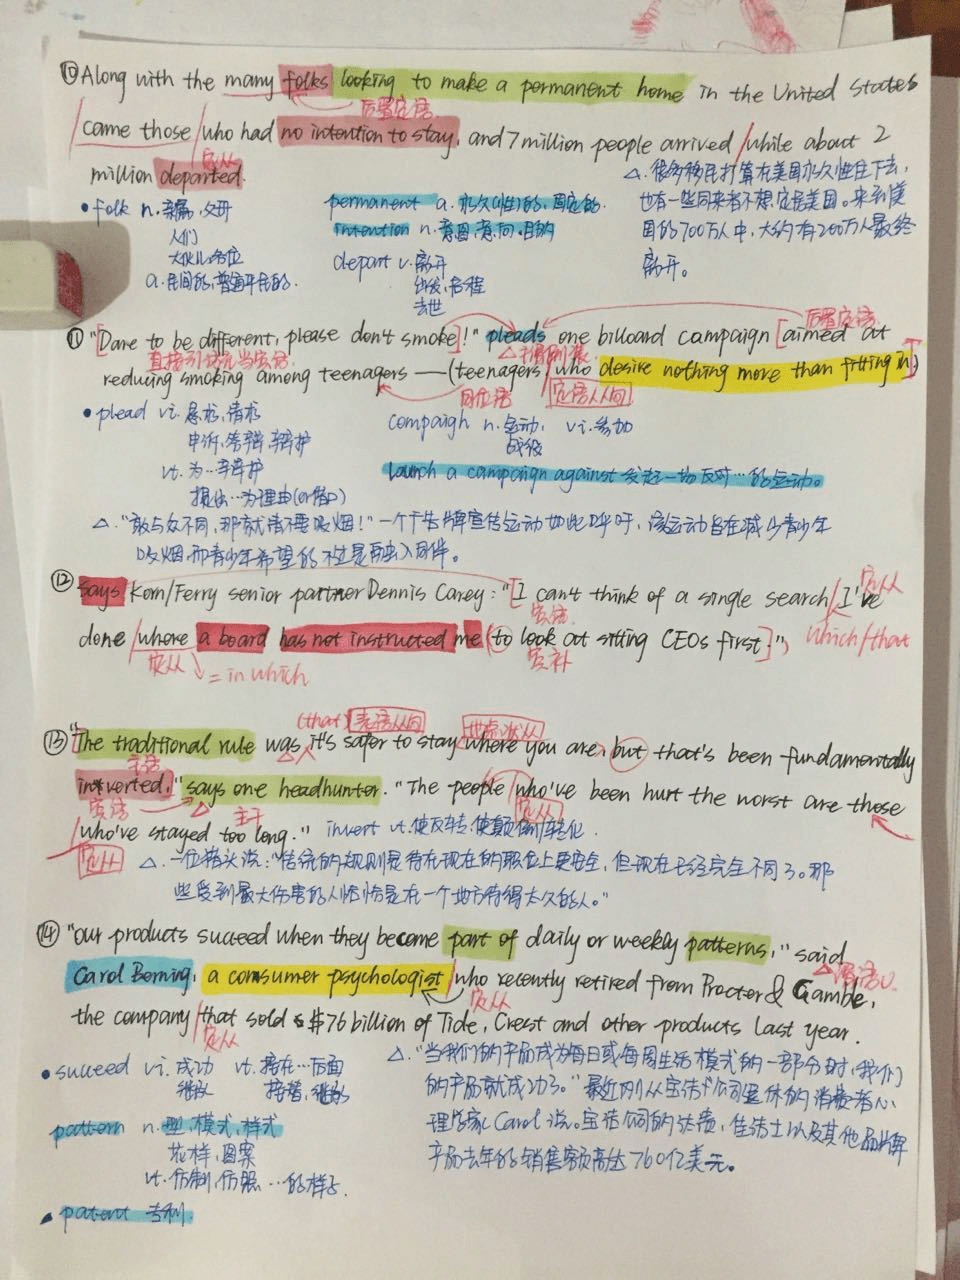 ⑩ Along with the many folks looking to make a permanent home in the United States
后置定语
came those / who had no intention to stay, and 7 million people arrived / while about 2
定从
million departed.
△. 很多移民打算在美国永久性住下去,
• folk n. 亲属, 父母
permanent a. 永久(性)的, 固定的
也有一些同来者不想定居美国。来到美
人们
intention n. 意图, 意向, 目的
国的700万人中, 大约有200万人最终
大伙儿, 各位
depart v. 离开
离开。
a. 民间的, 普通平民的.
出发, 启程
去世
后置定语
⑪ "[Dare to be different, please don't smoke]!" pleads one billoard campaign [aimed at
直接引语充当宾语
reducing smoking among teenagers —— (teenagers / who desire nothing more than fitting in)]
同位语
定语从句
• plead vi. 恳求, 请求
compaigh n. 运动, vi. 参加
申诉, 答辩, 辩护
战役
vt. 为…辩护
launch a campaign against 发起一场反对…的运动。
提出…为理由(or借口)
△. "敢与众不同, 那就请不要吸烟!" 一个广告牌宣传运动如此呼吁, 该运动旨在减少青少年
吸烟, 而青少年希望的不过是融入同伴。
定从
⑫ Says Korn/Ferry senior partner Dennis Carey: "[I can't think of a single search / I've
宾语
which/that
done / where a board has not instructed me (to look at sitting CEOs first]",
定从
= in which
宾补
(that) 表语从句
地点状从
⑬ "The traditional rule was it's safer to stay where you are, but that's been fundamentally
主语
inverted." says one headhunter. "The people / who've been hurt the worst are those
宾语
主干
定从
/ who've stayed too long." invert vt. 使反转, 使颠倒, 转化.
定从
△. 一位猎头说: "传统的规则是待在现在的职位上更安全, 但现在已经完全不同了。那
些受到最大伤害的人恰恰是在一个地方待得太久的人。"
⑭ "our products succeed when they become part of daily or weekly patterns," said
谓语
Carol Berning, a consumer psychologist / who recently retired from Procter & Gamble,
定从
the company / that sold $76 billion of Tide, Crest and other products last year.
定从
• succeed vi. 成功 vt. 接在…后面
△. "当我们的产品成为每日或每周生活模式的一部分时, 我们
继承 接替, 继承
的产品就成功了。" 最近刚从宝洁公司退休的消费者心
pattern n. 型, 模式, 样式
理学家Carol说。宝洁公司的汰渍, 佳洁士以及其他品牌
花样, 图案
产品去年的销售额高达760亿美元。
vt. 仿制, 仿照…的样子.
patent 专利